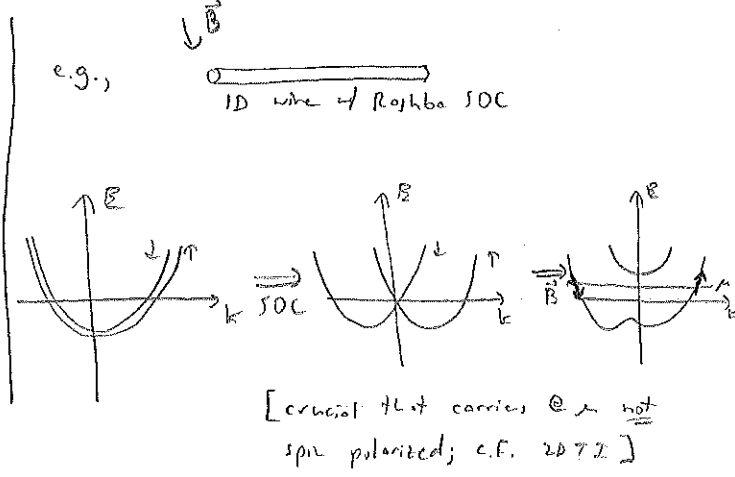 B⃗
e.g.,
1D wire w/ Rashba SOC
E
E
E
↓ ↑
↓
↑
⇒
SOC
⇒
B⃗
μ
k
k
k
[crucial that carriers @ μ not
spin polarized; c.f. 2D TI]